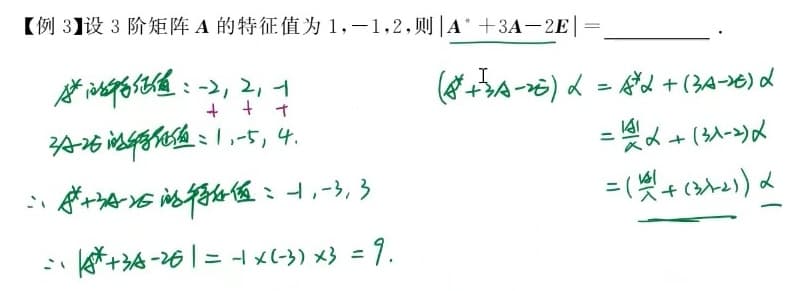 【例 3】设 3 阶矩阵 A 的特征值为 1,-1,2,则|A*+3A-2E|=________.
A*的特征值:-2, 2, -1
+ + +
3A-2E的特征值:1,-5, 4.
∴ A*+3A-2E的特征值:-1,-3, 3
∴ |A*+3A-2E| = -1×(-3)×3 = 9.
(A*+3A-2E)α = A*α+(3A-2E)α
= |A|/λ α + (3λ-2)α
= (|A|/λ + (3λ-2)) α